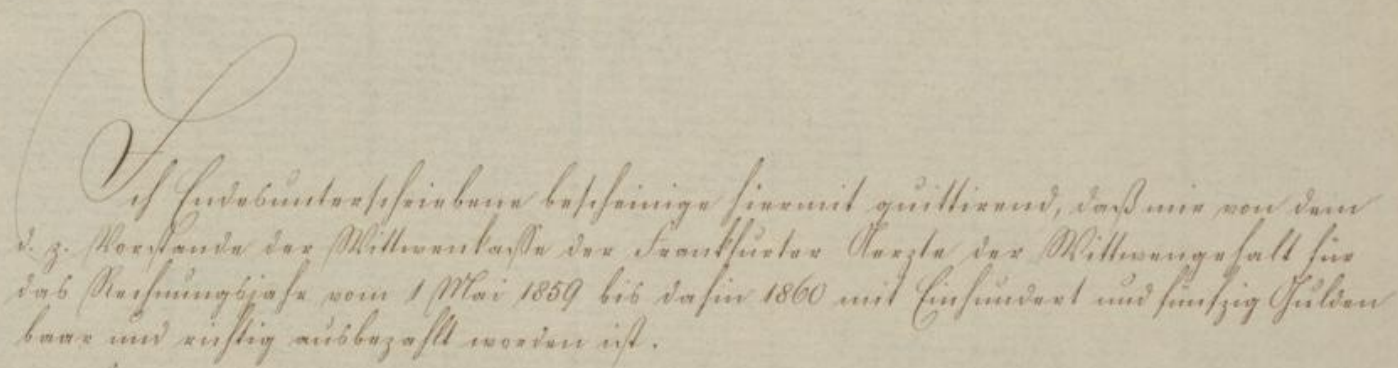 Ich Endesunterschriebene bescheinige hiermit quittirend, daß mir von dem
d. z. Vorstande der Wittwenkasse der Frankfurter Aerzte der Wittwengehalt für
das Rechnungsjahr vom 1 Mai 1859 bis dahin 1860 mit Einhundert und fünfzig Gulden
baar und richtig ausbezahlt worden ist.